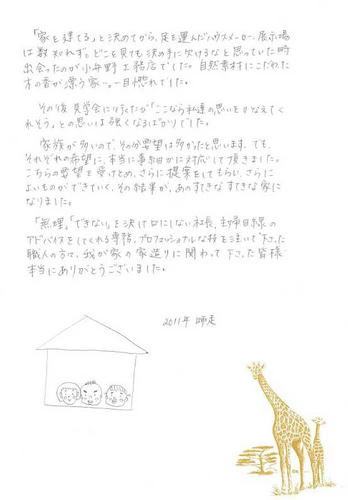 「家を建てる」と決めてから、足を運んだハウスメーカー、展示場
は数知れず。どこを見ても決め手に欠けるなと思っていた時
出会ったのが小安野工務店でした。自然素材にこだわった
木の香が漂う家…。一目惚れでした。
その後見学会に行くたび「ここなら私達の思いをかなえてく
れそう」との思いは強くなるばかりでした。
家族が多いので、その分要望は多かったと思います。でも、
それぞれの希望に、本当に事細かに対応して頂きました。
こちらの要望を受けとめ、さらに提案をしてもらい、さらに
よいものができていく、その結果が、あのすてきなすてきな家に
なりました。
「無理」「できない」を決して口にしない社長、主婦目線の
アドバイスをしてくれる専務、プロフェッショナルな技を注いで下さった
職人の方々、我が家の家造りに関わって下さった皆様
本当にありがとうございました。
2011年 師走